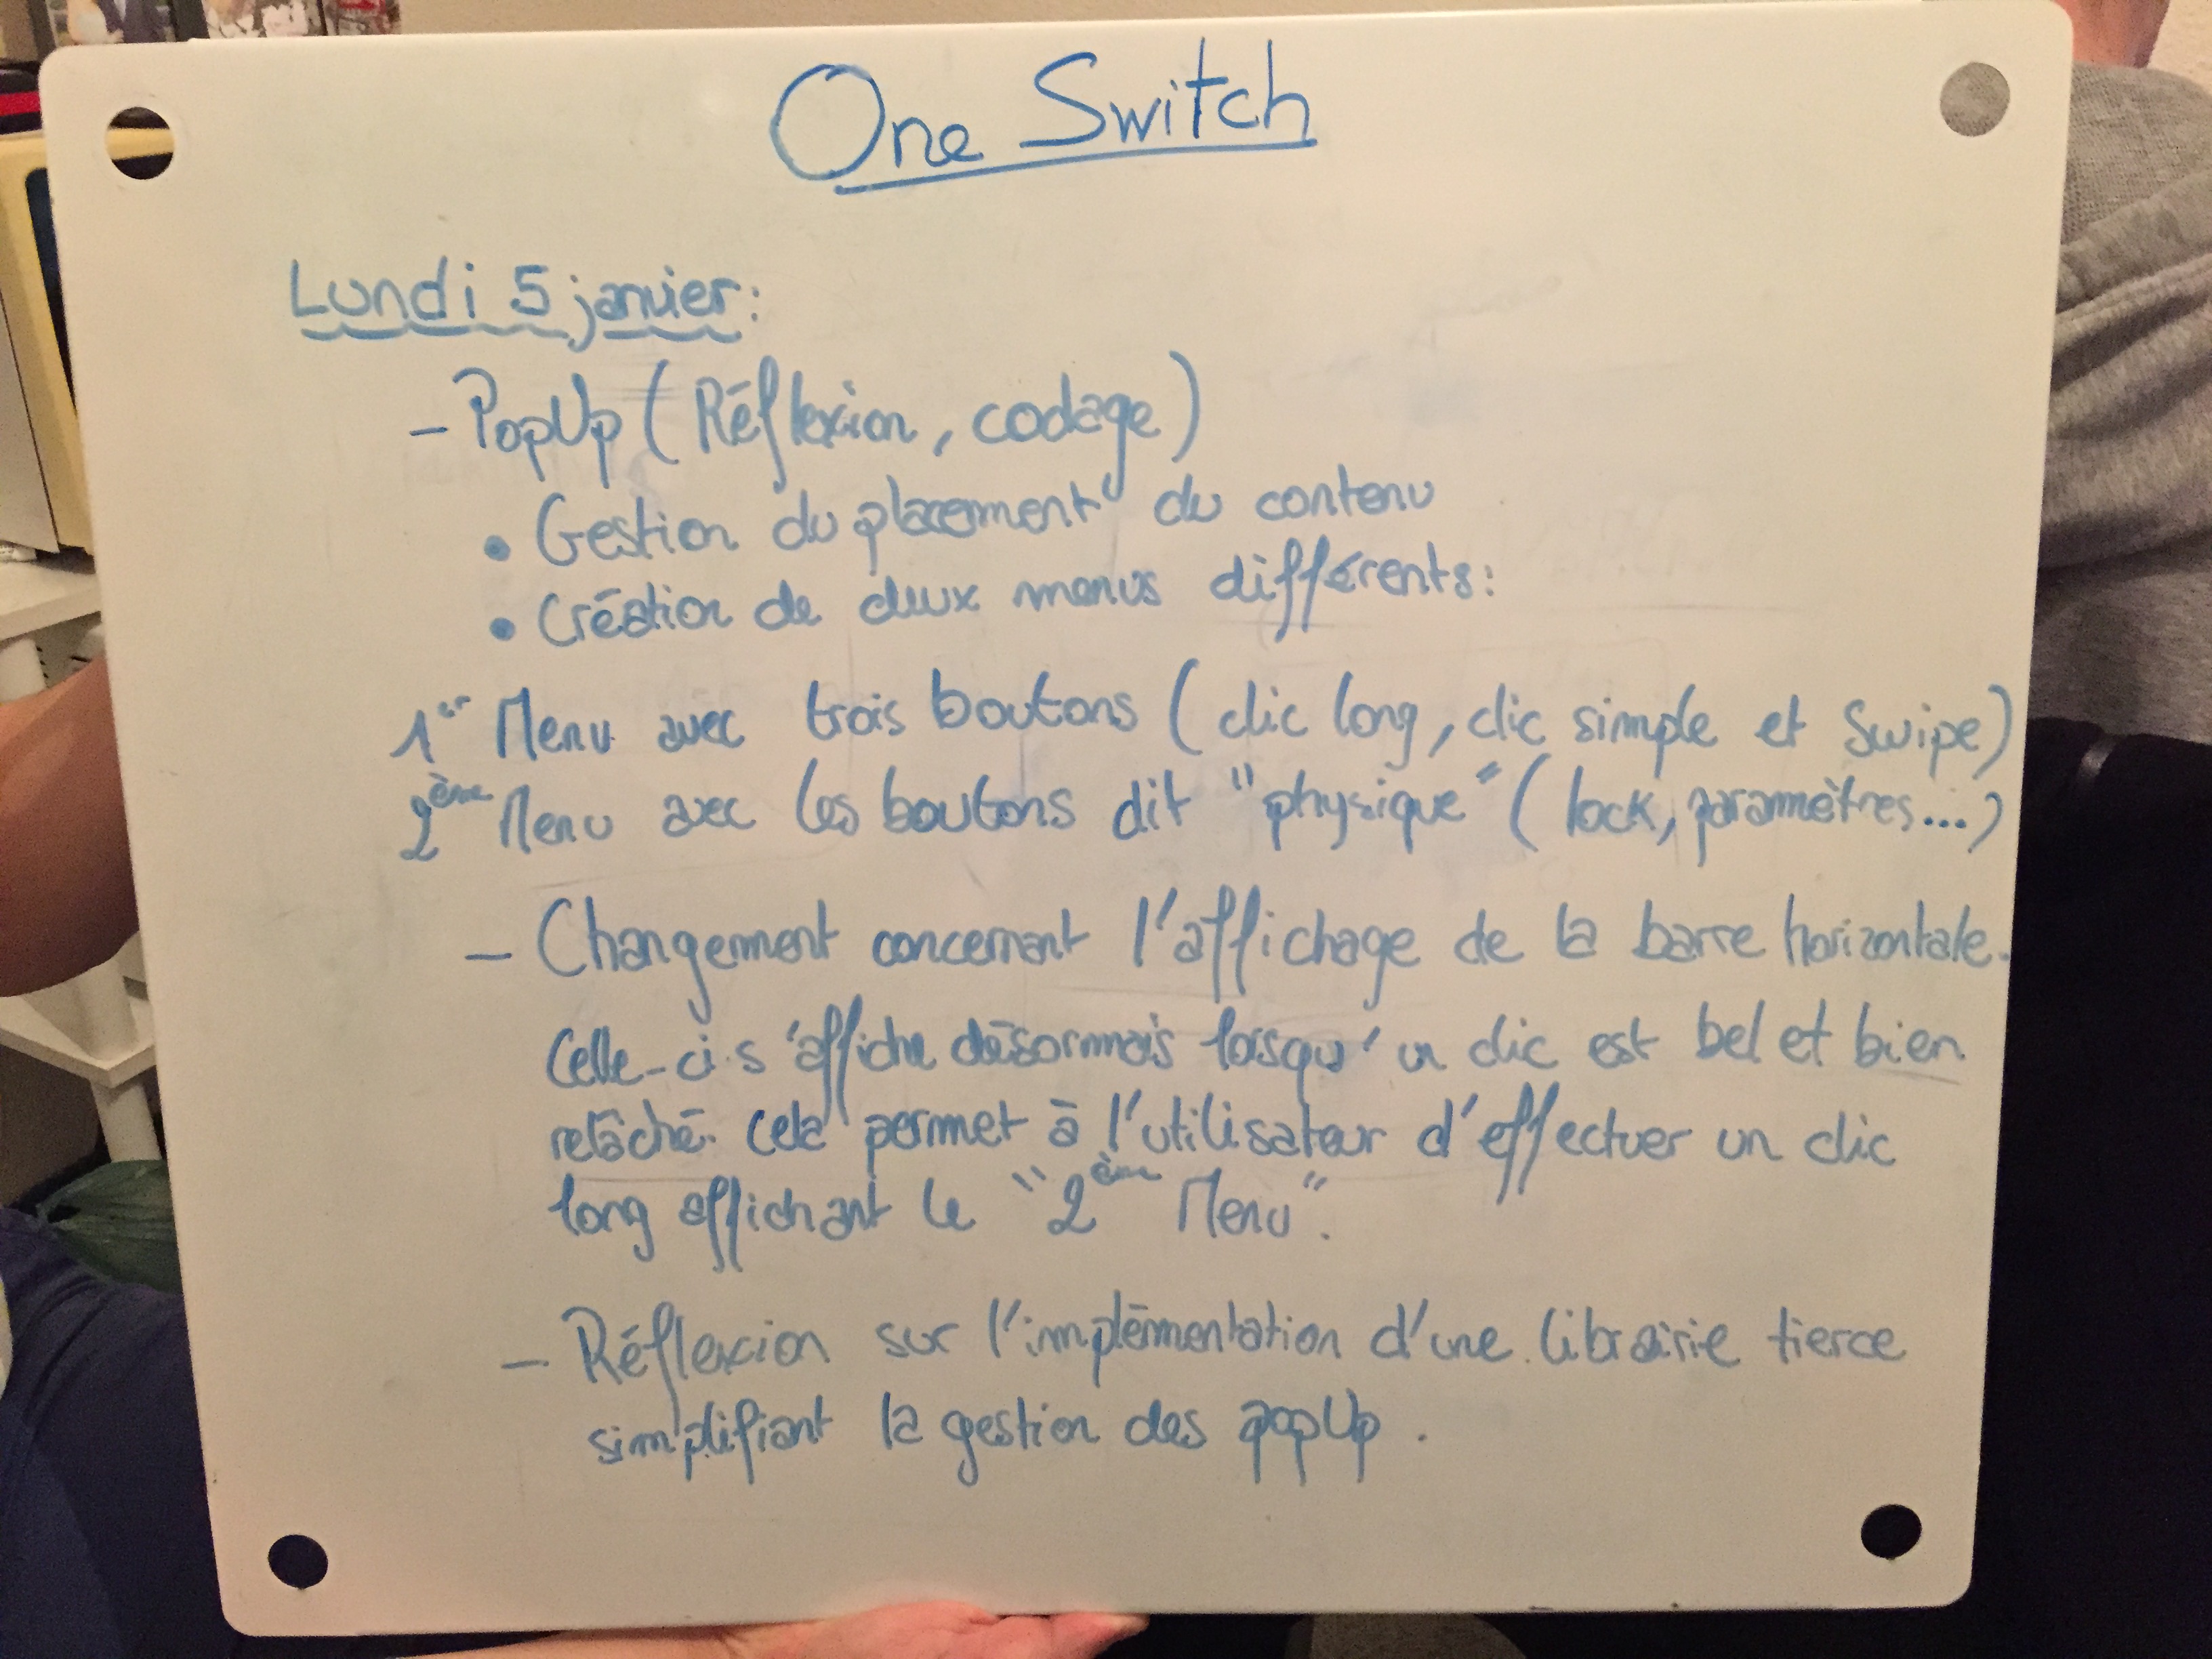 One Switch
Lundi 5 janvier :
- PopUp (Réflexion, codage)
• Gestion du placement du contenu
• Création de deux menus différents :
1er Menu avec trois boutons (clic long, clic simple et Swipe)
2ème Menu avec les boutons dit "physique" (lock, paramètres...)
- Changement concernant l'affichage de la barre horizontale.
Celle-ci s'affiche désormais lorsqu'un clic est bel et bien
relâché. Cela permet à l'utilisateur d'effectuer un clic
long affichant le "2ème Menu".
- Réflexion sur l'implémentation d'une librairie tierce
simplifiant la gestion des popUp.